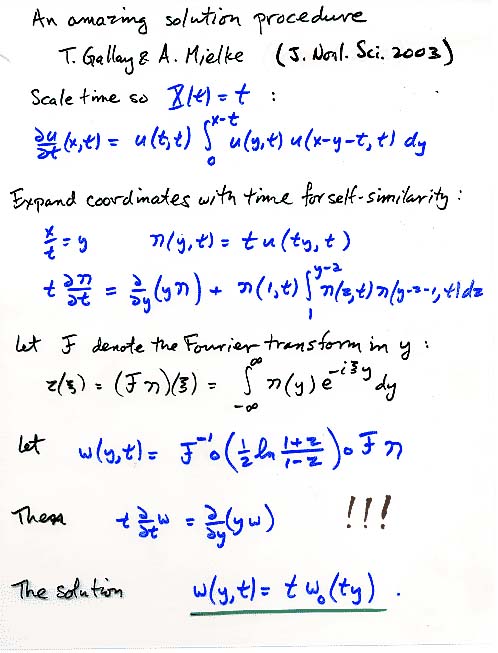 An amazing solution procedure
T. Gallay & A. Mielke (J. Nonl. Sci. 2003)
Scale time so X(t) = t :
∂u/∂t (x,t) = u(t,t) ∫_0^{x-t} u(y,t) u(x-y-t, t) dy
Expand coordinates with time for self-similarity :
x/t = y n(y,t) = t u(ty, t)
t ∂n/∂t = ∂/∂y (y n) + n(1,t) ∫_1^{y-2} n(z,t) n(y-z-1, t) dz
Let F denote the Fourier transform in y :
z(ξ) = (F n)(ξ) = ∫_{-∞}^{∞} n(y) e^{-iξy} dy
Let w(y,t) = F^{-1} ∘ (½ ln (1+z)/(1-z)) ∘ F n
Then t ∂/∂t w = ∂/∂y (y w) !!!
The solution w(y,t) = t w_0(ty) .